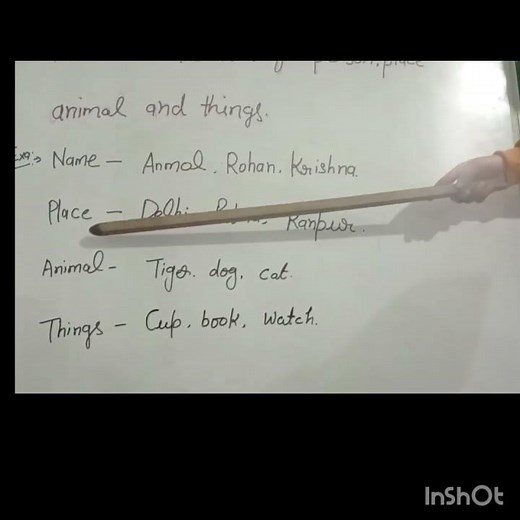 person, place
animal and things.
Exa:→ Name – Anmol, Rohan, Krishna.
Place – Delhi, Kanpur.
Animal – Tiger, dog, cat.
Things – Cup, book, watch.
InShOt